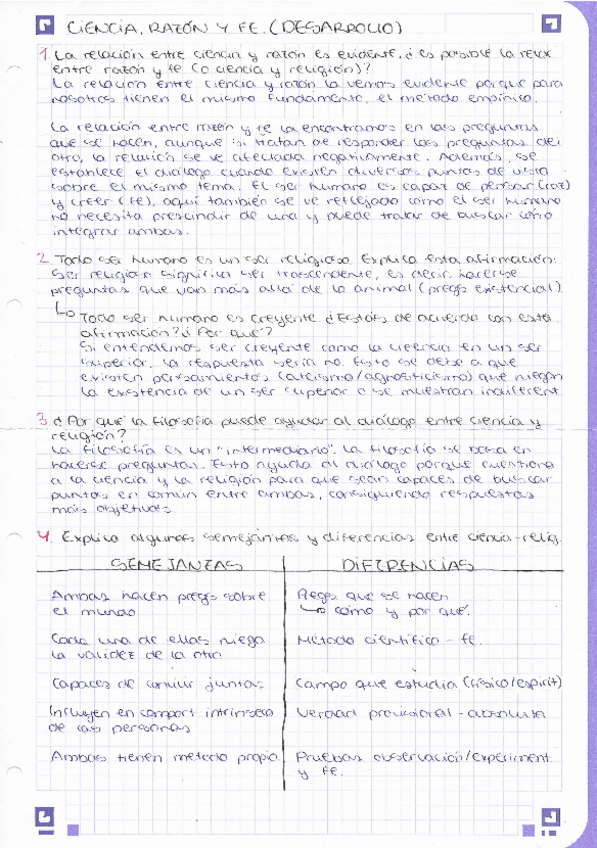 CIENCIA, RAZÓN Y FE. (DESARROLLO)
1. La relación entre ciencia y razón es evidente, ¿es posible la relax
entre razón y fe (o ciencia y religión)?
La relación entre ciencia y razón la vemos evidente porque para
nosotros tienen el mismo fundamento, el método empírico.
La relación entre razón y fe la encontramos en las preguntas
que se hacen, aunque si tratan de responder las preguntas del
otro, la relación se ve afectada negativamente. Además, se
establece el diálogo cuando existen diversos puntos de vista
sobre el mismo tema. El ser humano es capaz de pensar (raz)
y creer (fe), aquí también se ve reflejado como el ser humano
no necesita prescindir de una y puede tratar de buscar cómo
integrar ambas.
2. Todo ser humano es un ser religioso. Explica esta afirmación.
Ser religión significa ser trascendente, es decir, hacerse
preguntas que van más allá de lo animal (pregs existencial)
↳ Todo ser humano es creyente. ¿Estáis de acuerdo con esta
afirmación? ¿Por qué?
Si entendemos ser creyente como la creencia en un ser
superior, la respuesta sería no. Esto se debe a que
existen pensamientos (ateísmo/agnosticismo) que niegan
la existencia de un ser superior o se muestran indiferent
3 ¿Por qué la filosofía puede ayudar al diálogo entre ciencia y
religión?
La filosofía es un "intermediario". La filosofía se basa en
hacerse preguntas. Esto ayuda al diálogo porque cuestiona
a la ciencia y la religión para que sean capaces de buscar
puntos en común entre ambas, consiguiendo respuestas
más objetivas
4. Explica algunas semejanzas y diferencias entre ciencia-relig.
SEMEJANZAS DIFERENCIAS
Ambas hacen pregs sobre
el mundo
Pregs que se hacen
↳ cómo y por qué.
Cada una de ellas niega
la validez de la otra
Método científico - fe.
Capaces de convivir juntas
Campo que estudia (físico/espirit)
Influyen en comport intrínseco
de las personas
Verdad provisional - absoluta
Ambas tienen método propio
Pruebas observación/experiment
y fe.